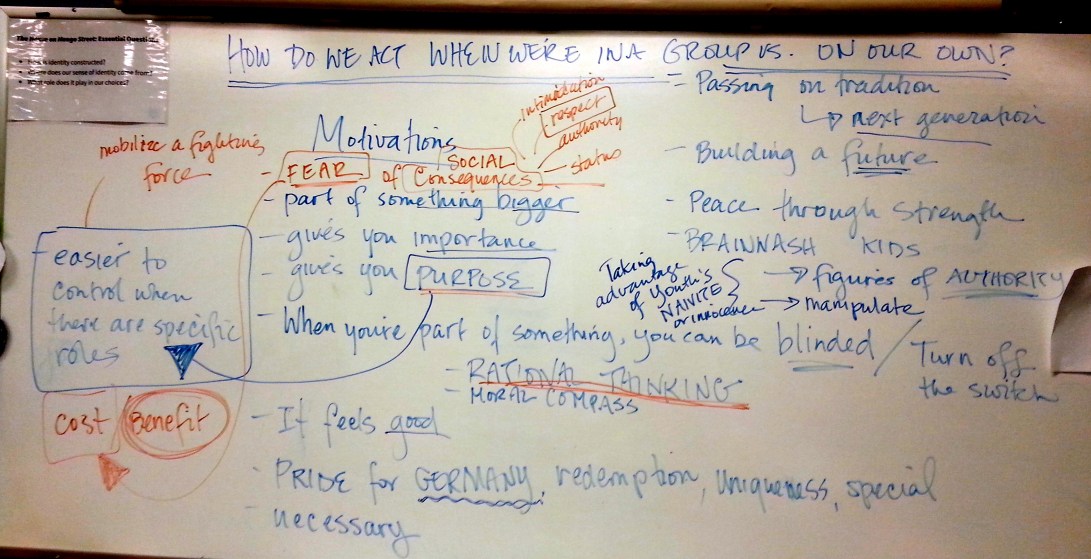 The House on Mango Street: Essential Questi
How is identity constructed?
Where does our sense of identity come from?
What role does it play in our choices?
HOW DO WE ACT WHEN WE'RE IN A GROUP VS. ON OUR OWN?
mobilize a fighting
force
easier to
control when
there are specific
roles
cost / Benefit
Motivations
- FEAR of SOCIAL
Consequences
intimidation
respect
authority
- status
- part of something bigger
- gives you importance
- gives you PURPOSE
- When you're part of something, you can be blinded / Turn off
the switch
- RATIONAL THINKING
- MORAL COMPASS
- It feels good
- PRIDE for GERMANY, redemption, Uniqueness, special
- necessary
= Passing on tradition
↳ next generation
- Building a future
- Peace through Strength
- BRAINWASH KIDS
Taking
advantage
of youth's
NAIVITE
or innocence
→ figures of AUTHORITY
→ manipulate